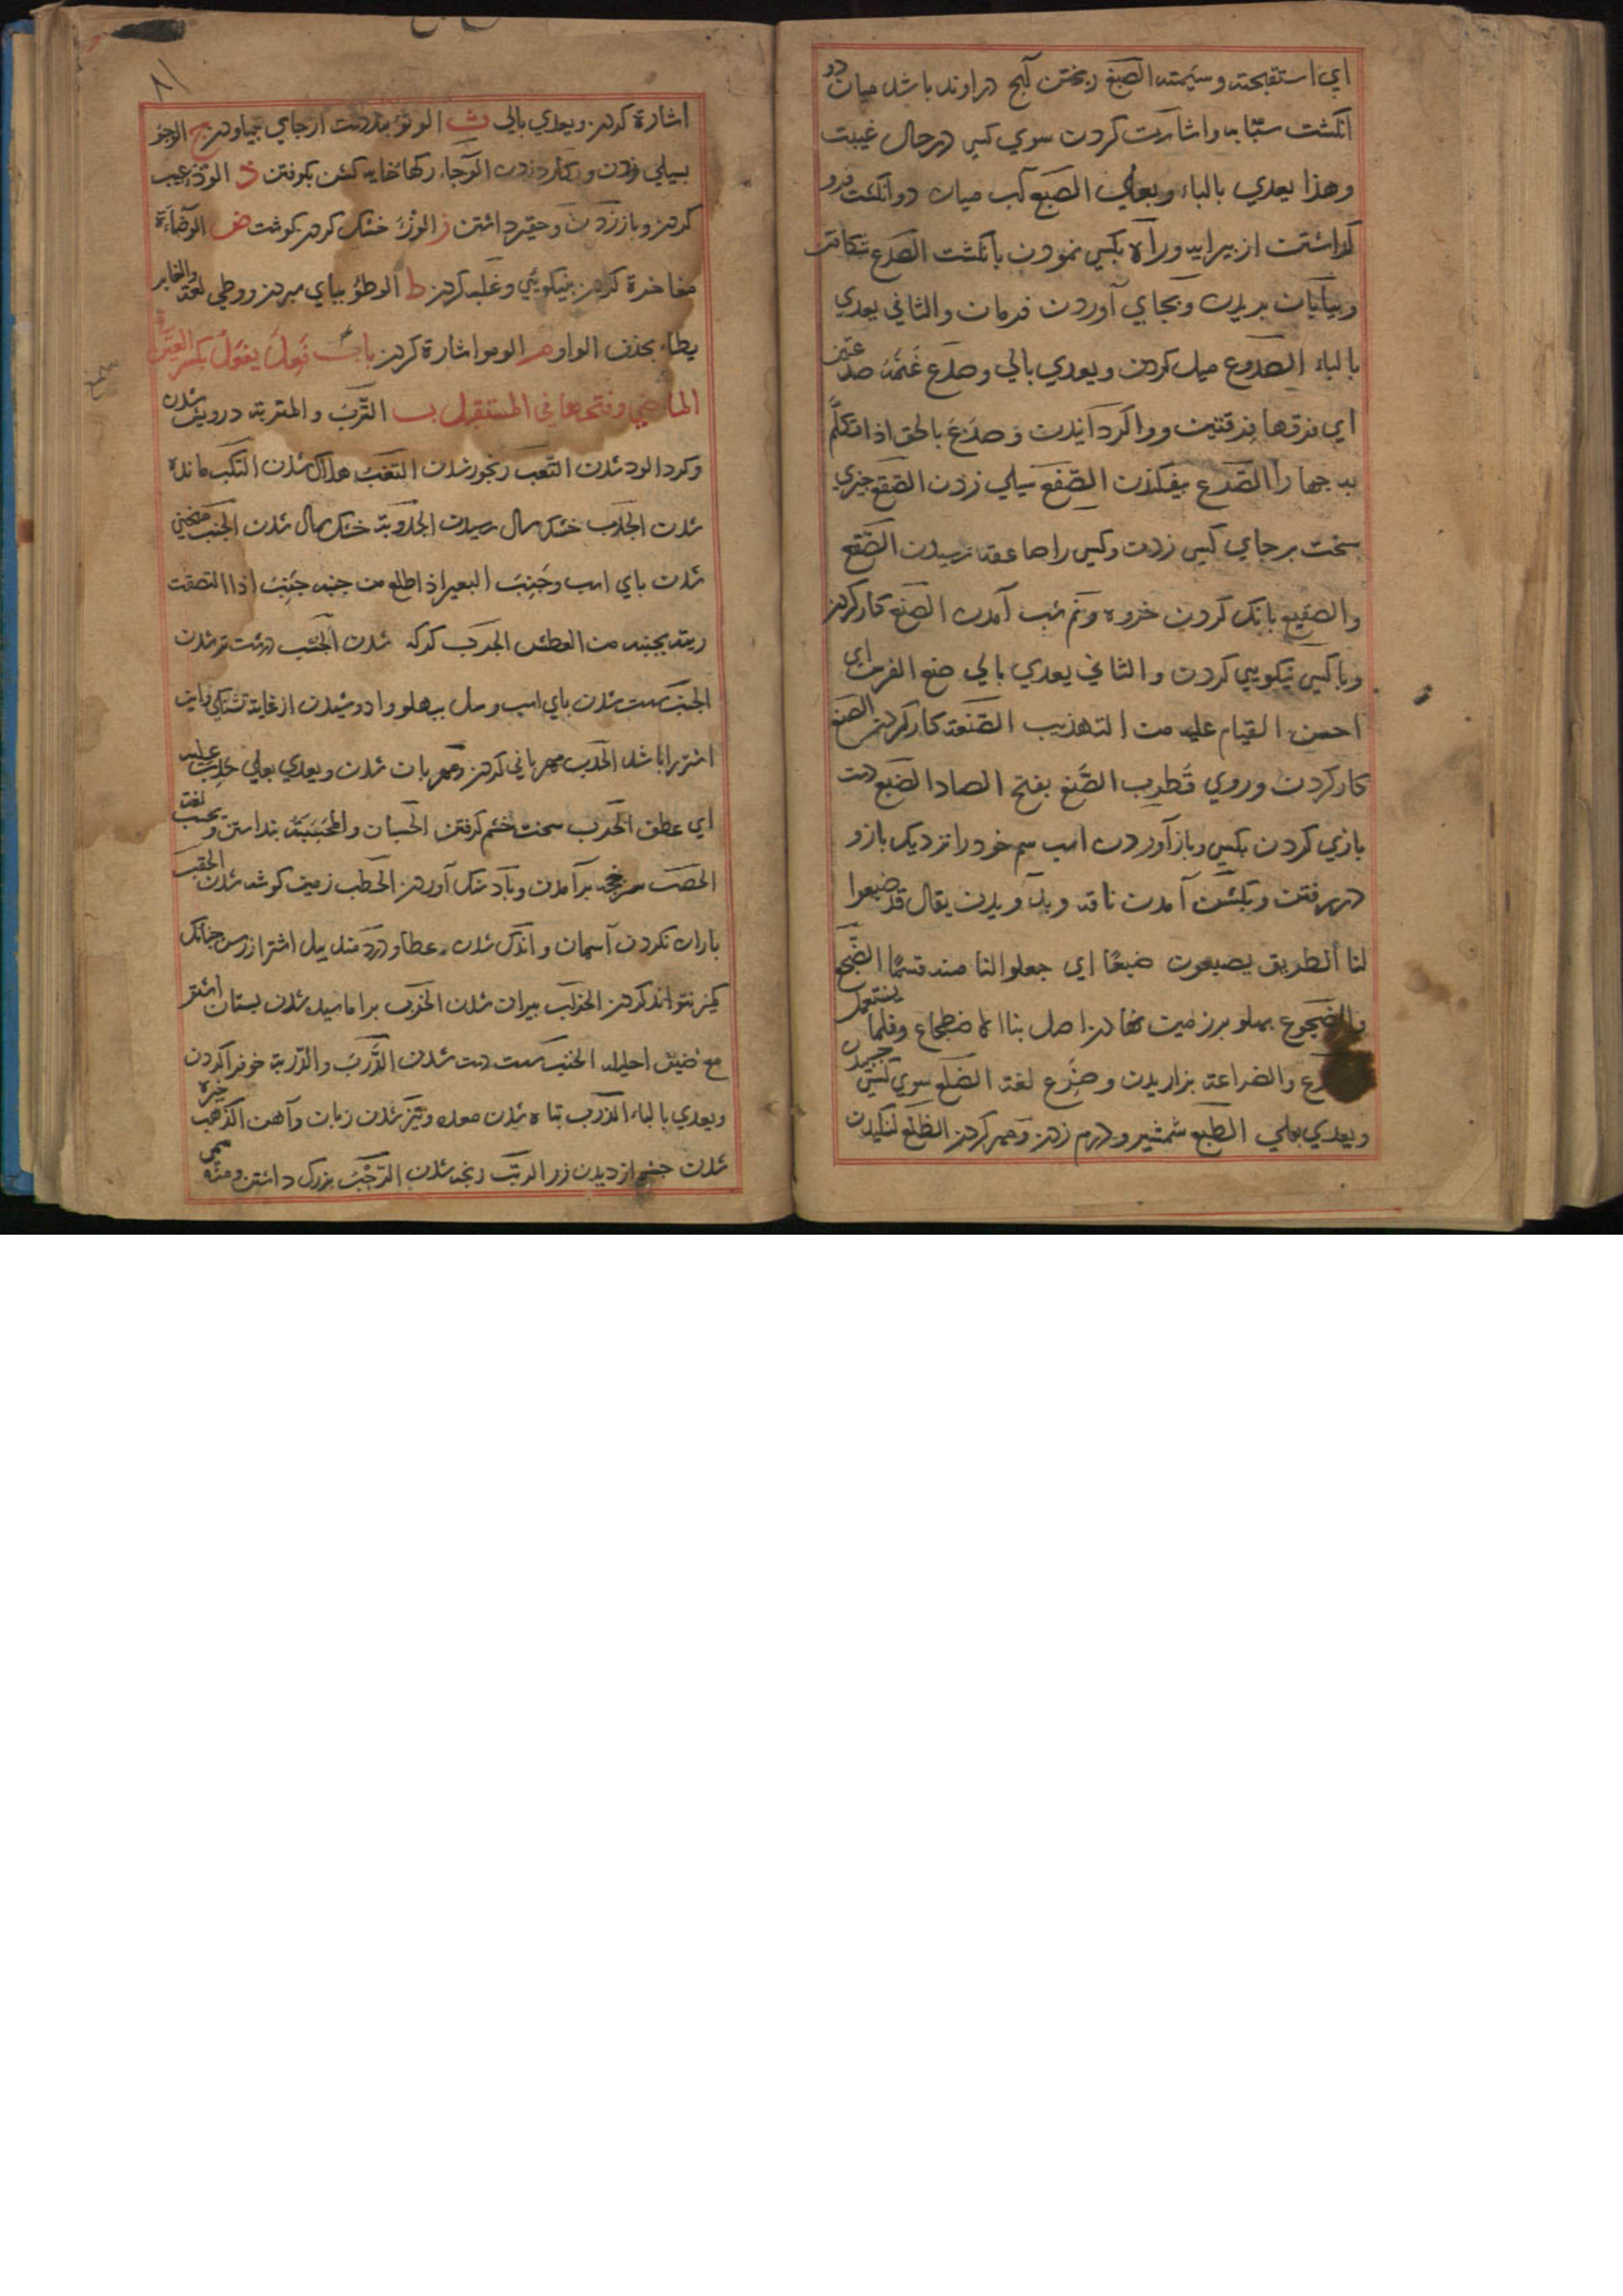 اي استقبحته وسئمته الصبغ ريختن آبج در اوند باشد ميان دو
انكشت سبّابه واشارت كردن سوي كسي در حال غيبت
وهذا يعدي بالباء وبعلي الصبع آب ميان دو انكشت فرو
كذاشتن از بيرايه وراه بكسي نمودن بانكشت الصدع شكافتن
وبيابان بريدن وبجاي آوردن فرمان والثاني يعدي
بالباء الصدوع ميل كردن ويعدي بالي وصدع غنمه صدعتين
اي فرقها فرقتين وواكردانيدن وصدع بالحق اذا تكلم
به جهارا الصدع بيفكندن الصفع سيلي زدن الصقع جيزي
سخت بر جاي كسي زدن وكسي را صاعقه رسيدن الصقع
والصقيع بانك كردن خروه ونم شب آمدن الصنع كار كردن
وبا كسي نيكويي كردن والثاني يعدي بالي صنع الفرس اي
احسن القيام عليه من التهذيب الصنعة كار كردن الصنع
كار كردن وروي قطرب الصَّنع بفتح الصاد الضبع دست
يازي كردن بكسي وباز آوردن اسب سم خود را نزديك بازو
در رفتن وبكشن آمدن ناقه وبدويدن يقال قد ضبعوا
لنا الطريق يضبعون ضبعًا اي جعلوا لنا منه قسمًا الضجع
والضجوع پهلو بر زمين نهادن اصل بنا الاضطجاع وقلما يستعمل
والضراعة بزاريدن وضرع لغة الضلع سوي كسي جسيدن
ويعدي بعلي الطبع شمشير ودرم زدن ومهر كردن الظلع لنكيدن
٨١
اشارة كردن ويعدي بالي ث الوثؤ بدر دست از جاي بياوردن ج الوجؤ
بسيلي زدن وبكارد زدن الوجاء ركها خايه كشن بكوفتن ذ الوذؤ عيب
كردن وباز زدن وحقير داشتن ز الوزؤ خشك كردن كوشت ض الوضاءة
مفاخرة كردن بنيكويي وغلبه كردن ط الوطؤ بپاي سپردن ووطي لغة والغابر
يطاء بحذف الواو م الومو اشارة كردن باب فَعِلَ يفعَلُ بكسر العين
الماضي وفتحها في المستقبل ب التَّرَب والمتربة درويش شدن
وكرد آلود شدن التعب رنجور شدن التغب هلاك شدن النكب مانده
شدن الجدب خشك سال رسيدن الجدوبة خشك سال شدن الجنب منحني
شدن پاي اسب وجَنِبَ البعير اذا ظلع من جنبه جَنِبَ اذا التصقت
ريته بجنبه من العطش الجرب كركن شدن الجشب درشت تر شدن
الجنب سست شدن پاي اسب وميل بپهلو وا دوشيدن از غاية تشنكي واين
اشتر را باشد الحدب مهرباني كردن ومهربان شدن ويعدي بعلي حَدِبَ عليه
اي عطف الحرب سخت خشم كرفتن الحسبان والمحسبة بنداشتن ويحسب لغة
الحصب سرخجه برآمدن وباد سنك آوردن الحطب زمين كوشه شدن الحقب
باران نكردن آسمان واندك شدن عطا ودردمند ميل اشتر از رسن جنانك
كميز نتواند كردن الخرب بيران شدن الخزب براماسيده شدن پستان اشتر
مع ضيق احليله الخنب سست دست شدن الدَّرَب والدُّربة خوفرا كردن
ويعدي بالباء الذرب تباه شدن معده وتيز شدن زبان وآهن الذهب خيره
شدن جشم از ديدن زر الرتب رنجه شدن الترجيب بزرك داشتن ومنه سمي